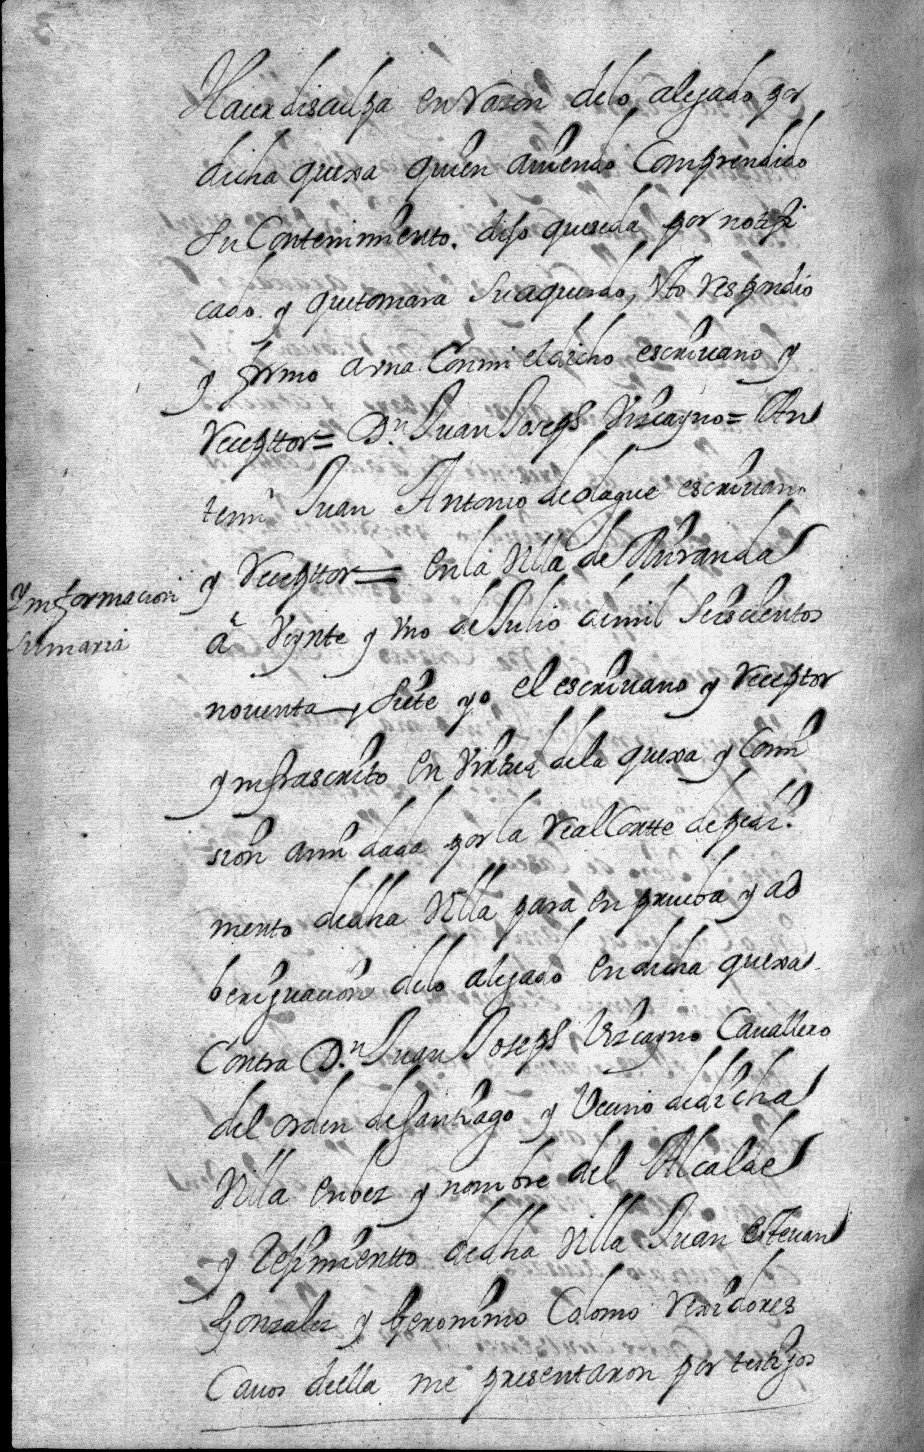 Hacer disculpa en Razon delo alegado por
dicha quexa quien aviendo Comprendido
Su Contenimiento. dijo queseda por notifi
cado. y quetomara Suaquerdo, Esto Respondio
y firmo a una Conmi eldicho escrivano y
Receptor= Dn. Juan Joseph Vizcayno= An
temi Juan Antonio de olague escrivano
y Receptor= En la Villa de Miranda
Ynformacion
Sumaria
à Veynte y Uno de Julio demil Seiscientos
noventa y siete yo el escrivano y Receptor
ynfrascrito en Virtud dela quexa y Comi
sion ami dada por la Real Corte de pedi
mento dedha Villa para en prueba y ad
beriguacion delo alegado en dicha quexa
Contra Dn. Juan Joseph Vizcayno Cavallero
del orden deSantiago y Vecino dedicha
Villa en bez y nombre del Alcalde
y Rejimiento dedha Villa Juan estevan
Gonzalez y Geronimo Colomo Rexidores
Cavos deella me presentaron por testigos